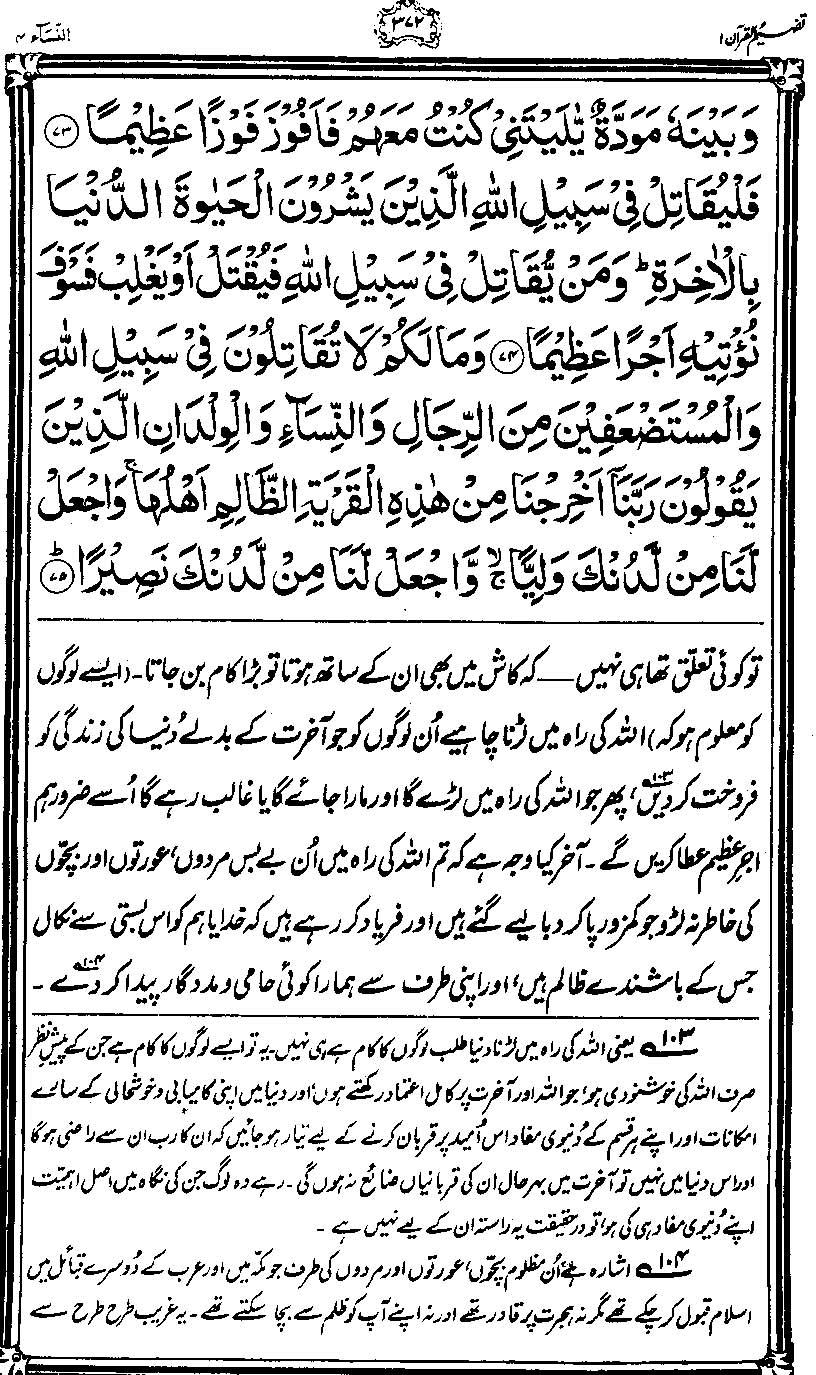 تفہیم القرآن ۱
۳۷۲
النساء ۴
وَبَيْنَهٗ مَوَدَّةٌ يّٰلَيْتَنِيْ كُنْتُ مَعَهُمْ فَاَفُوْزَ فَوْزًا عَظِيْمًا ﴿۷۳﴾
فَلْيُقَاتِلْ فِيْ سَبِيْلِ اللّٰهِ الَّذِيْنَ يَشْرُوْنَ الْحَيٰوةَ الدُّنْيَا
بِالْاٰخِرَةِ ؕ وَمَنْ يُّقَاتِلْ فِيْ سَبِيْلِ اللّٰهِ فَيُقْتَلْ اَوْ يَغْلِبْ فَسَوْفَ
نُؤْتِيْهِ اَجْرًا عَظِيْمًا ﴿۷۴﴾ وَمَا لَكُمْ لَا تُقَاتِلُوْنَ فِيْ سَبِيْلِ اللّٰهِ
وَالْمُسْتَضْعَفِيْنَ مِنَ الرِّجَالِ وَالنِّسَآءِ وَالْوِلْدَانِ الَّذِيْنَ
يَقُوْلُوْنَ رَبَّنَآ اَخْرِجْنَا مِنْ هٰذِهِ الْقَرْيَةِ الظَّالِمِ اَهْلُهَا ۚ وَاجْعَلْ
لَّنَا مِنْ لَّدُنْكَ وَلِيًّا ۙۚ وَّاجْعَلْ لَّنَا مِنْ لَّدُنْكَ نَصِيْرًا ﴿۷۵﴾ؕ
تو کوئی تعلق تھا ہی نہیں — کہ کاش میں بھی ان کے ساتھ ہوتا تو بڑا کام بن جاتا۔ (ایسے لوگوں
کو معلوم ہو کہ) اللہ کی راہ میں لڑنا چاہیے اُن لوگوں کو جو آخرت کے بدلے دُنیا کی زندگی کو
فروخت کر دیں۱۰۳، پھر جو اللہ کی راہ میں لڑے گا اور مارا جائے گا یا غالب رہے گا اُسے ضرور ہم
اجرِ عظیم عطا کریں گے۔ آخر کیا وجہ ہے کہ تم اللہ کی راہ میں اُن بے بس مردوں، عورتوں اور بچّوں
کی خاطر نہ لڑو جو کمزور پا کر دبا لیے گئے ہیں اور فریاد کر رہے ہیں کہ خدایا ہم کو اس بستی سے نکال
جس کے باشندے ظالم ہیں، اور اپنی طرف سے ہمارا کوئی حامی و مددگار پیدا کر دے۱۰۴۔
۱۰۳ یعنی اللہ کی راہ میں لڑنا دنیا طلب لوگوں کا کام ہے ہی نہیں۔ یہ تو ایسے لوگوں کا کام ہے جن کے پیشِ نظر
صرف اللہ کی خوشنودی ہو، جو اللہ اور آخرت پر کامل اعتماد رکھتے ہوں، اور دنیا میں اپنی کامیابی و خوشحالی کے سارے
امکانات اور اپنے ہر قسم کے دُنیوی مفاد اس اُمید پر قربان کرنے کے لیے تیار ہو جائیں کہ ان کا رب ان سے راضی ہوگا
اور اس دنیا میں نہیں تو آخرت میں بہرحال ان کی قربانیاں ضائع نہ ہوں گی۔ رہے وہ لوگ جن کی نگاہ میں اصل اہمیّت
اپنے دُنیوی مفاد ہی کی ہو، تو درحقیقت یہ راستہ ان کے لیے نہیں ہے۔
۱۰۴ اشارہ ہے اُن مظلوم بچّوں، عورتوں اور مردوں کی طرف جو مکّہ میں اور عرب کے دُوسرے قبائل میں
اسلام قبول کر چکے تھے مگر نہ ہجرت پر قادر تھے اور نہ اپنے آپ کو ظلم سے بچا سکتے تھے۔ یہ غریب طرح طرح سے